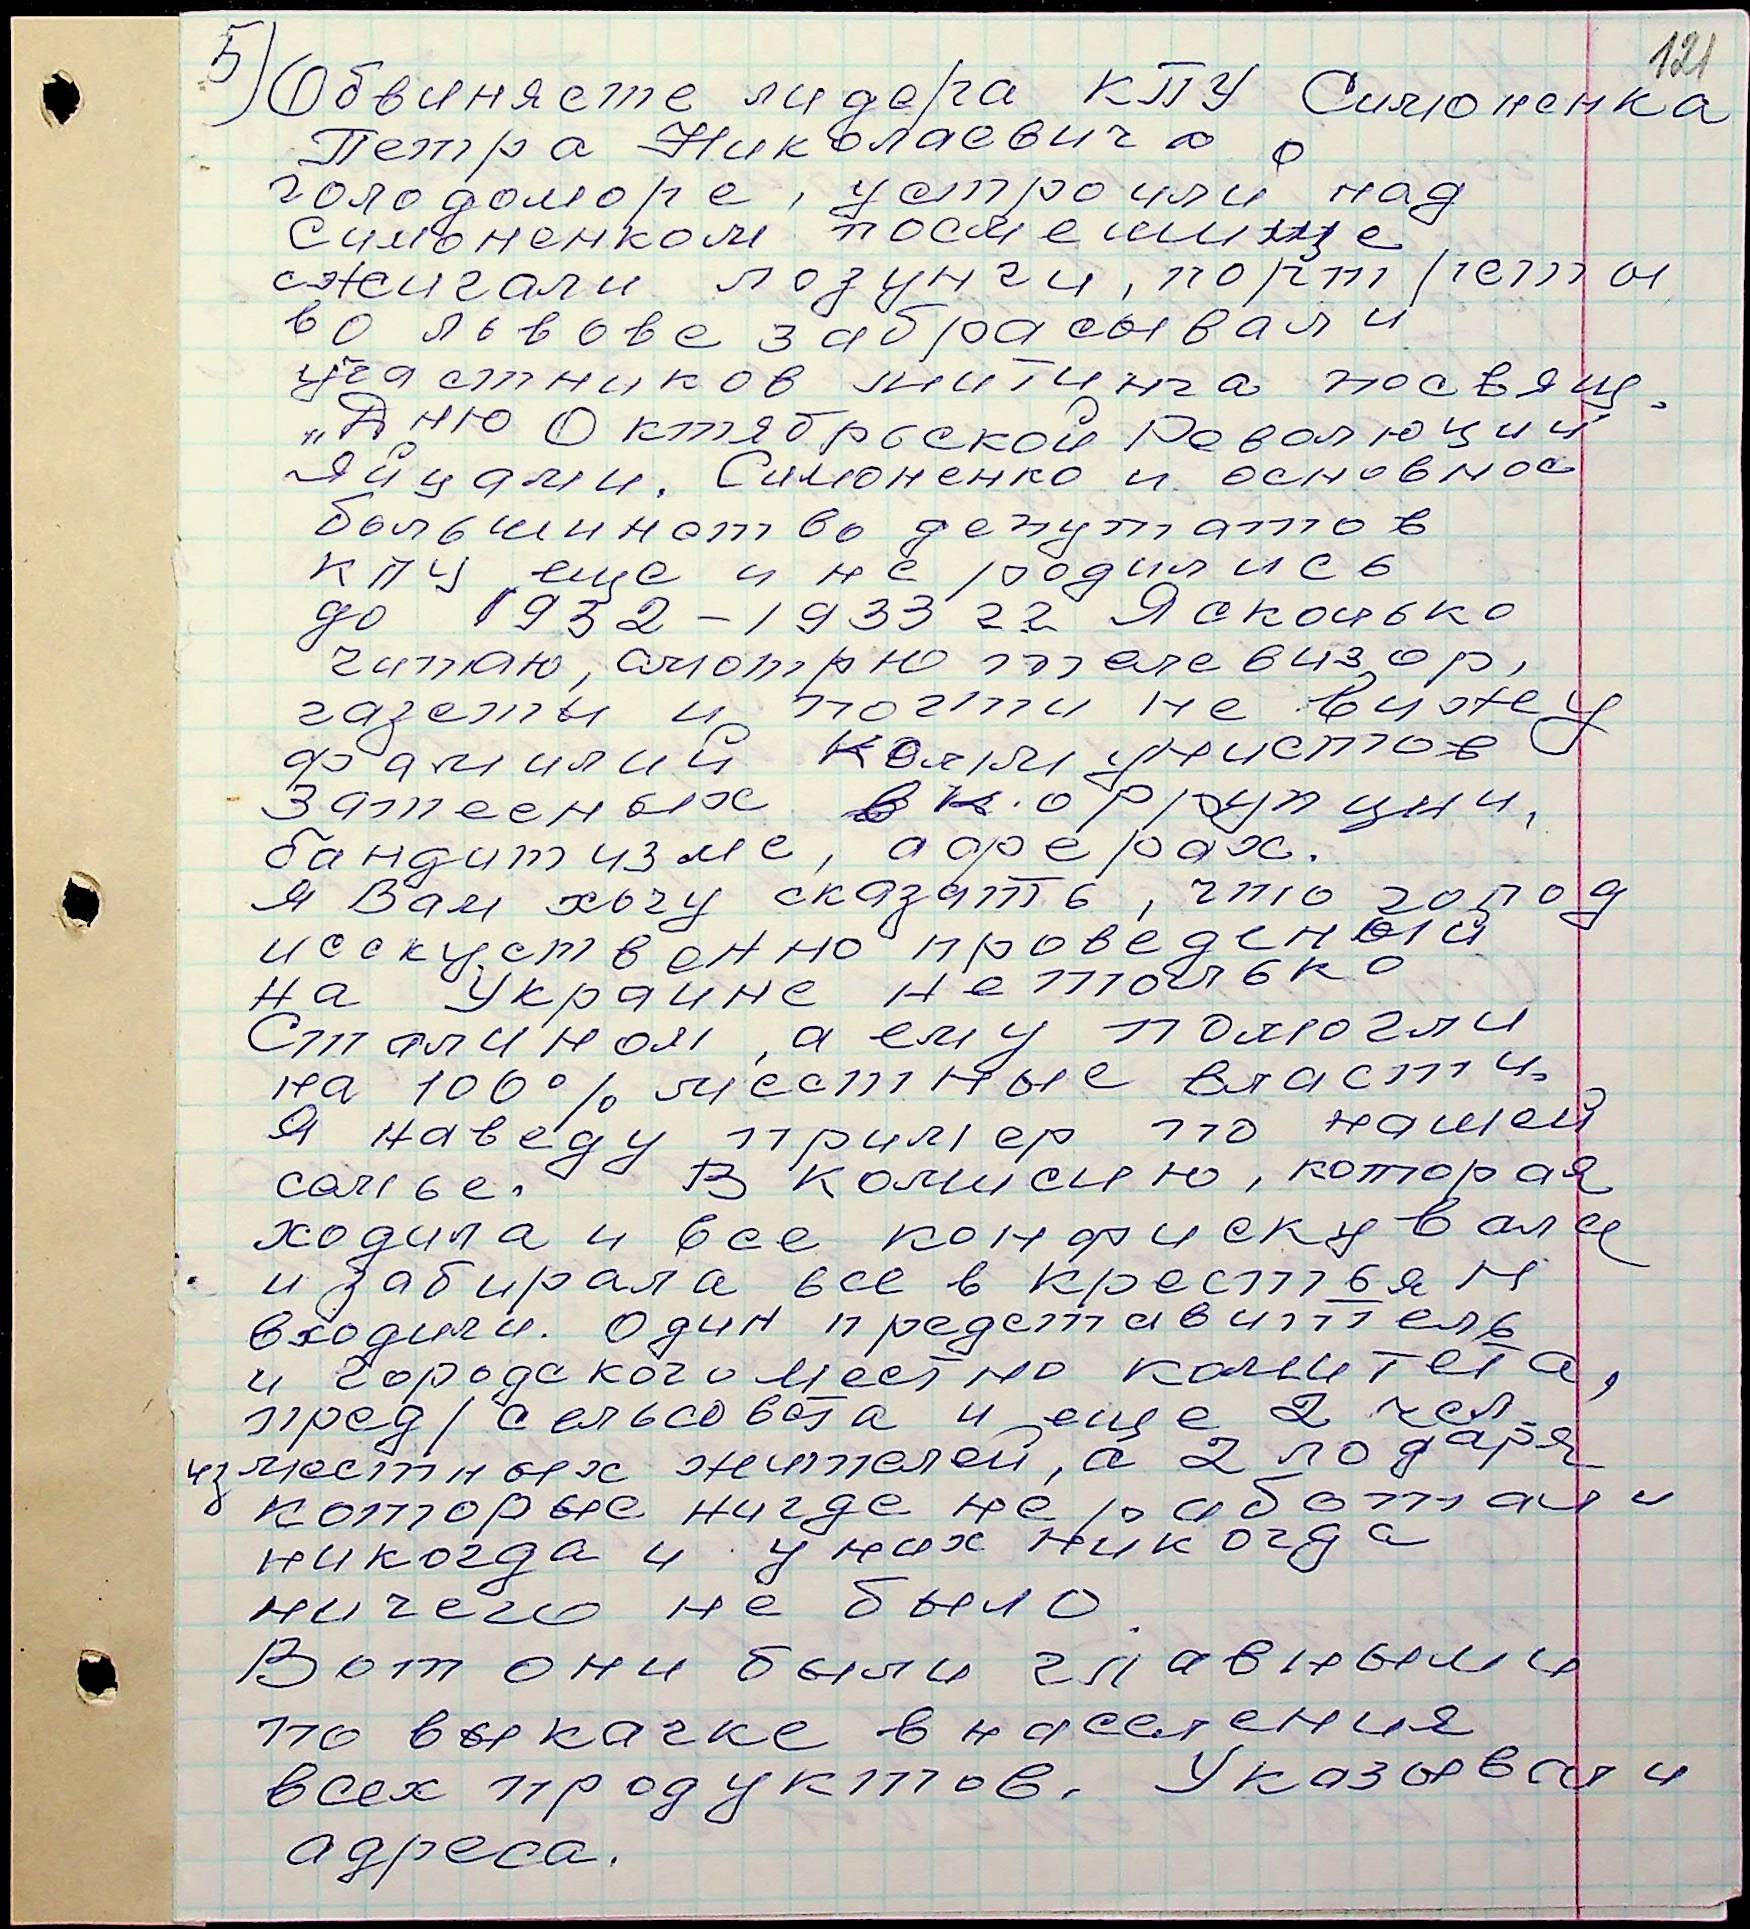 121
5) Обвиняете лидера КПУ Симоненка
Петра Николаевича о
голодоморе, устроили над
Симоненком посмешище
сжигали лозунги, портреты
во Львове забрасывали
участников митинга посвящ.
"Дню Октябрьской Революции
яйцами. Симоненко и основное
большинство депутатов
КПУ еще и не родились
до 1932-1933 гг Я сколько
читаю, смотрю телевизор,
газеты и почти не вижу
фамилий Коммунистов
затеeных в коррупции,
бандитизме, аферах.
Я Вам хочу сказать, что голод
исскуственно проведеный
на Украине не только
Сталином, а ему помогли
на 100% местные власти.
Я наведу пример по нашей
семье. В комисию, которая
ходила и все конфискували
и забирала все в крестьян
входили. Один представитель
и городского местно комитета,
пред/сельсовета и еще 2 чел
из местных жителей, а 2 лодаря
которые нигде не работали
никогда и у них никогда
ничего не было
Вот они были главными
по выкачке в населения
всех продуктов. Указывали
адреса.